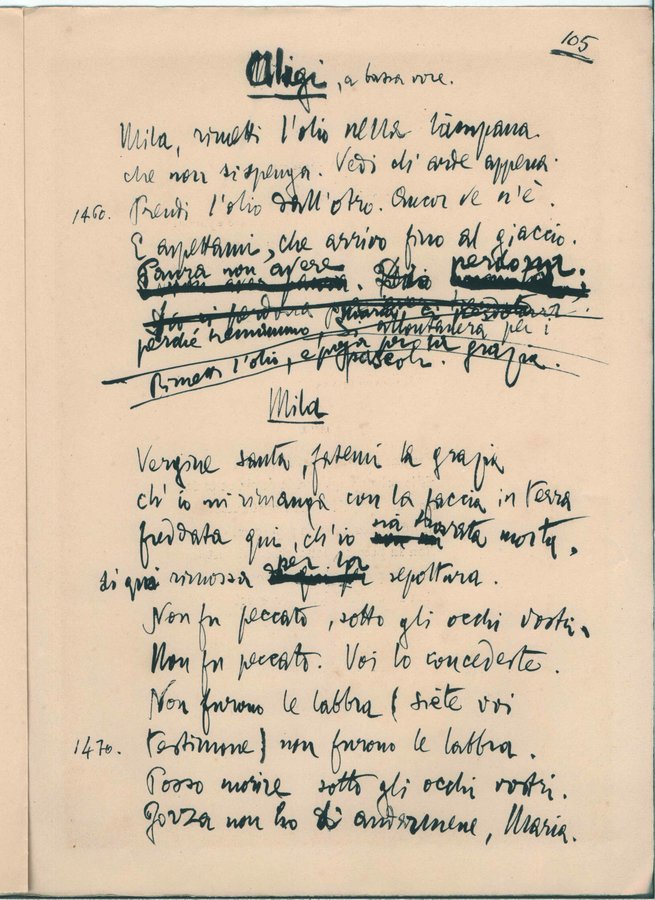 105
Aligi, a bassa voce.
Mila, rimetti l'olio nella làmpana
che non si spenga. Vedi ch'arde appena.
1460. Prendi l'olio dall'otro. Ancor ve n'è.
E aspettami, che arrivo fino al giaccio.
Paura non avere. perdona.
perché tremammo si allontanerà per i
pascoli.
Rimetti l'olio, e prega per la grazia.
Mila
Vergine santa, fatemi la grazia
ch'io mi rimanga con la faccia in terra
freddata qui, ch'io sia trovata morta,
di qui rimossa per la sepoltura.
Non fu peccato, sotto gli occhi vostri.
Non fu peccato. Voi lo concedeste.
Non furono le labbra (siete voi
1470. testimone) non furono le labbra.
Posso morire sotto gli occhi vostri.
Forza non ho di andarmene, Maria.